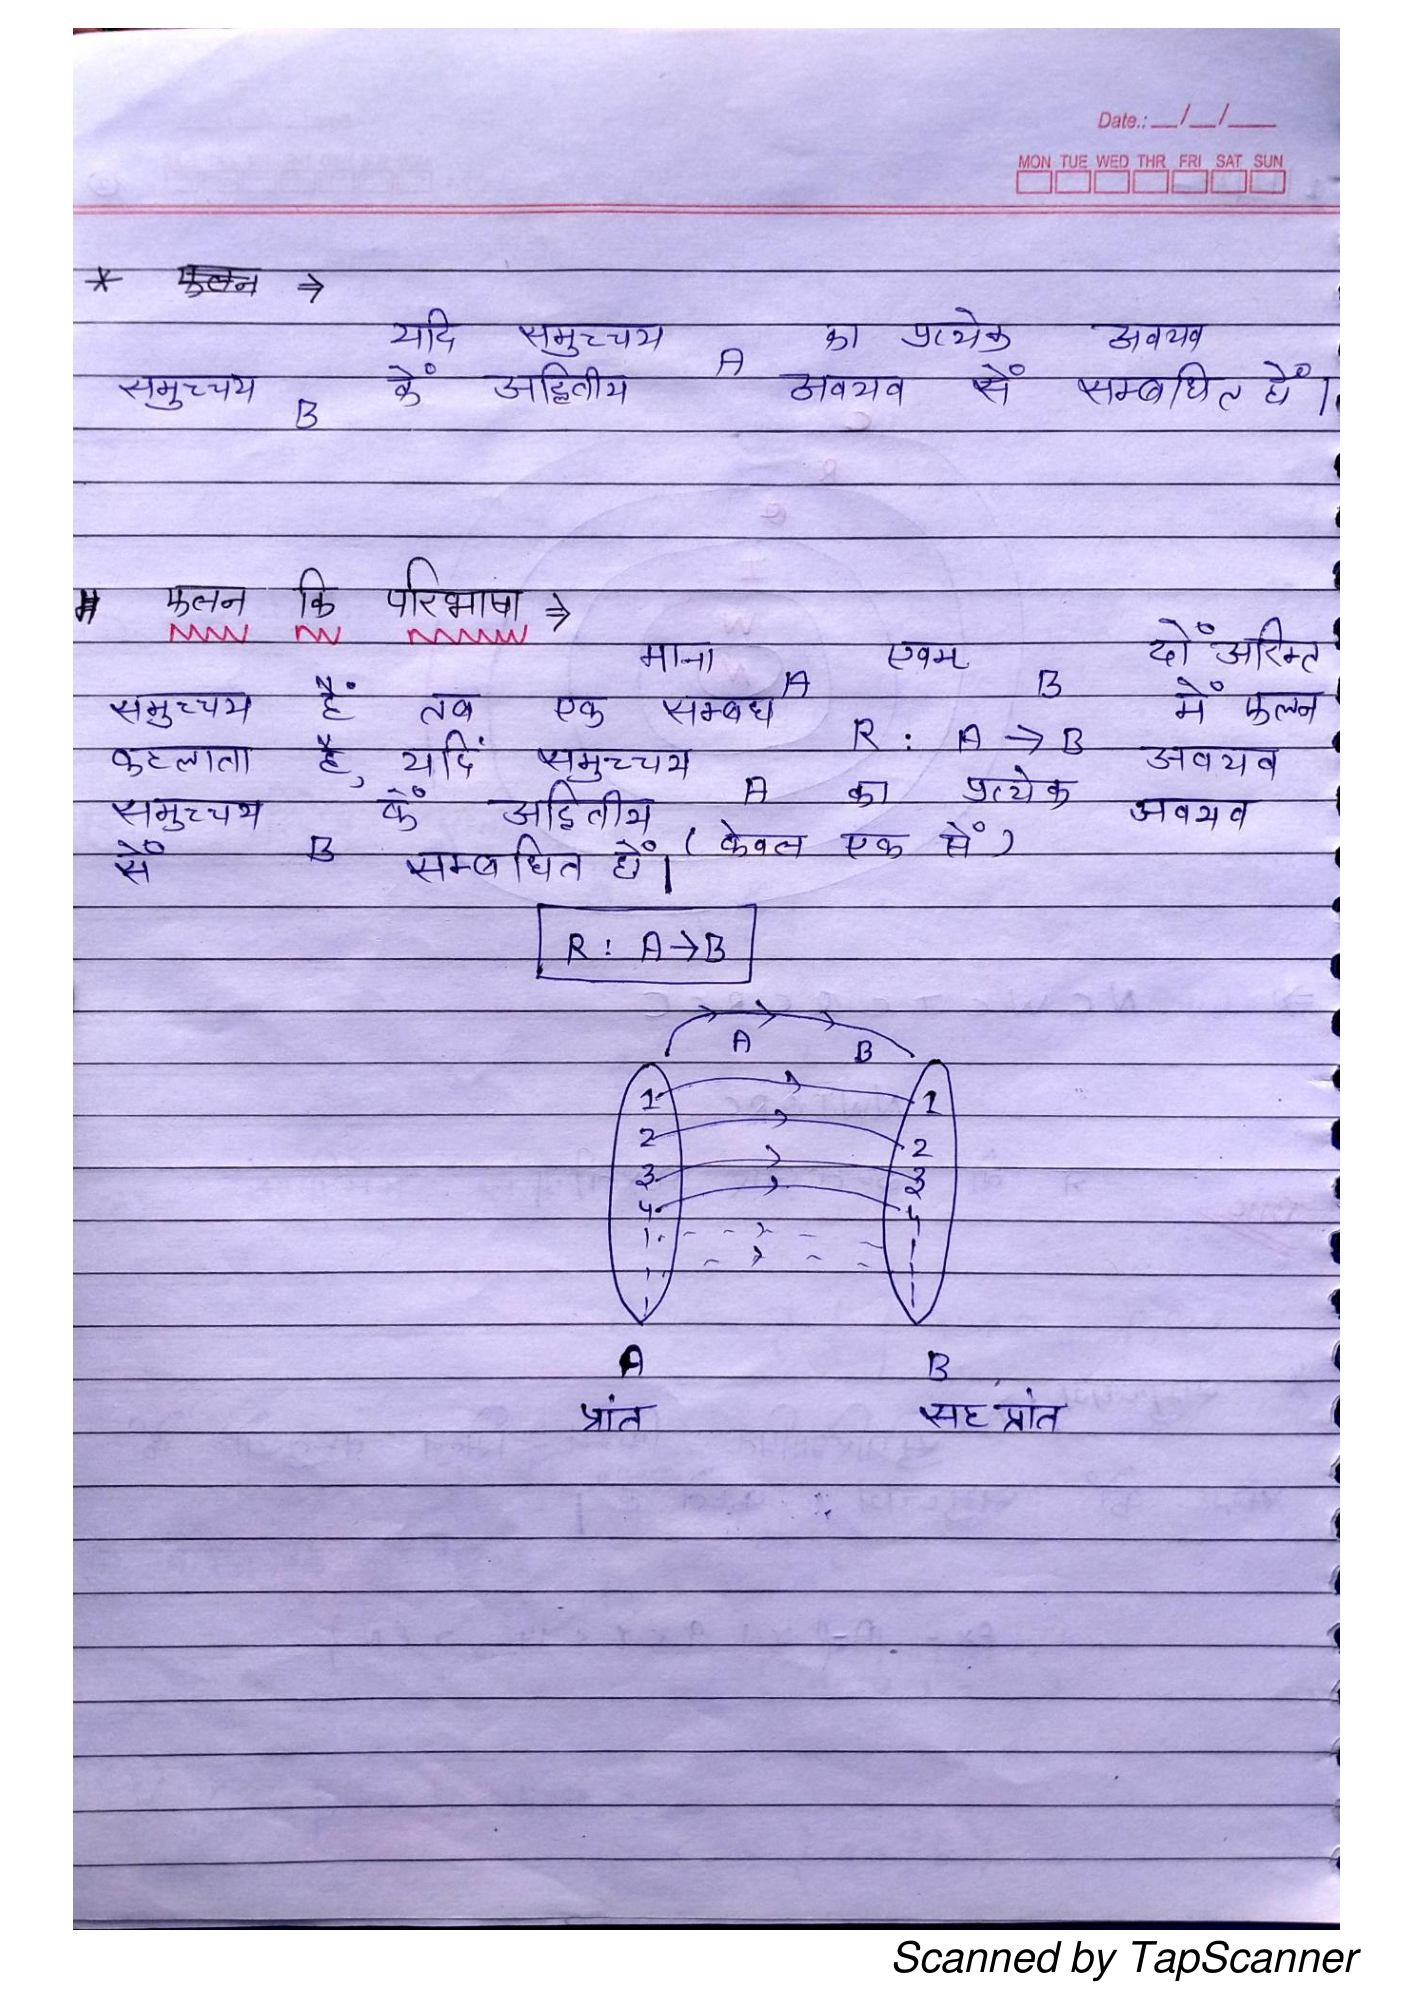 Date.: __/__/___
MON TUE WED THR FRI SAT SUN
* फलन ⇒
यदि समुच्चय A का प्रत्येक अवयव
समुच्चय B कें अद्वितीय अवयव सें सम्बधित हों।
# फलन कि परिभाषा ⇒
माना A एवम B दों अरिम्त
समुच्चय हैं तब एक सम्बध R : A → B में फलन
कहलाता है, यदिं समुच्चय A का प्रत्येक अवयव
समुच्चय B कें अद्वितीय (केवल एक सें) अवयव
सें सम्बधित हों।
R : A→B
A B
1 1
2 2
3 3
4 4
A B
प्रांत सह प्रांत
Scanned by TapScanner